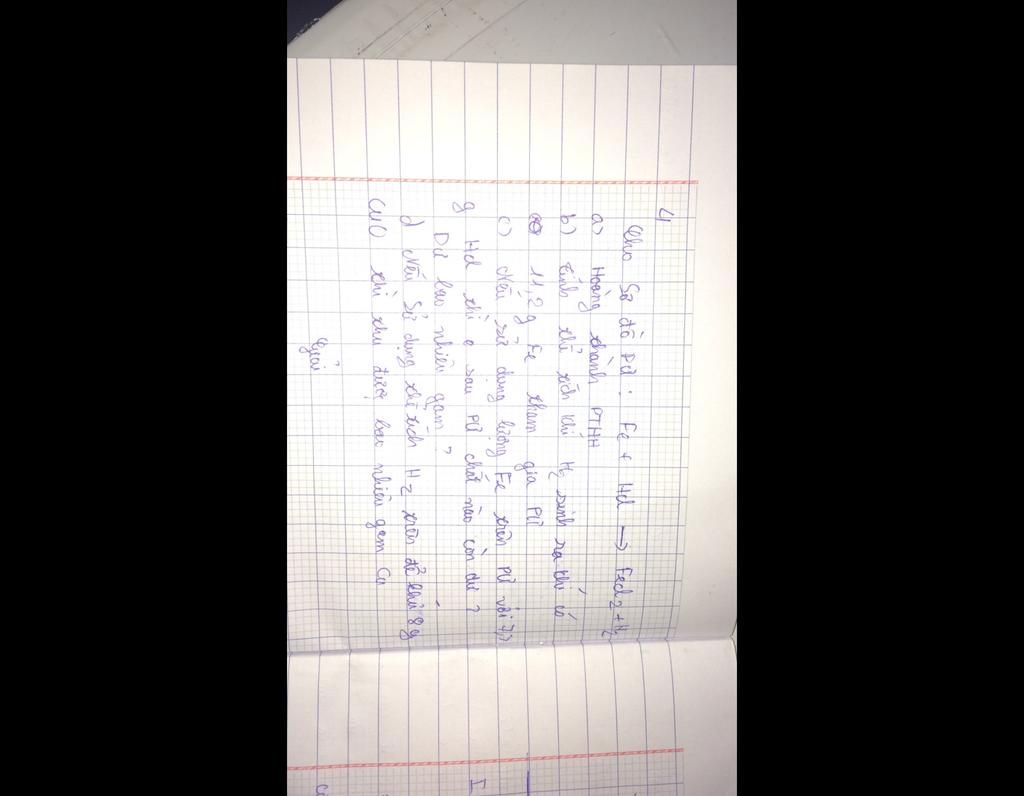 4
Cho Sơ đồ PƯ : Fe + Hcl → Fecl2 + H2
a) Hoàng thành PTHH
b) tính thể tích khí H2 sinh ra khi có
11,2 g Fe tham gia PƯ
c) Nếu sử dụng lượng Fe trên PƯ với 7,3
g Hcl thì sau PƯ chất nào còn dư ?
Dư bao nhiêu gam ?
d) Nếu sử dụng thể tích H2 trên để khử 8g
CuO thì thu được bao nhiêu gam Cu
Giải
I